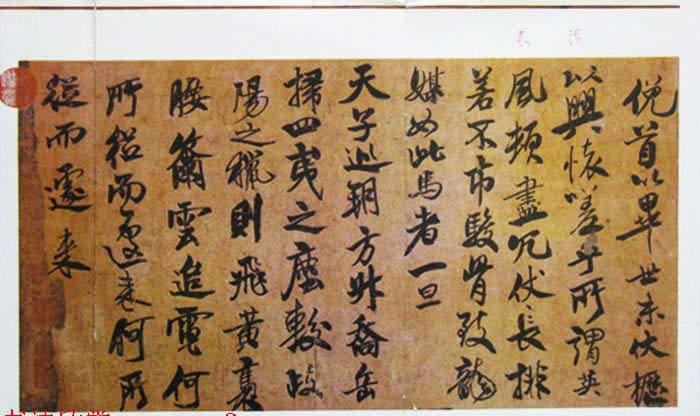 俛首以畢世未伏櫪
以興懷嗟乎所謂英
風頓盡冗仗長排
若不市駿骨致龍
媒如此馬者一旦
天子巡朔方升喬岳
掃四夷之塵較岐
陽之獵則飛黃褭
腰籋雲追電何
所從而遽來何所
從而遽來